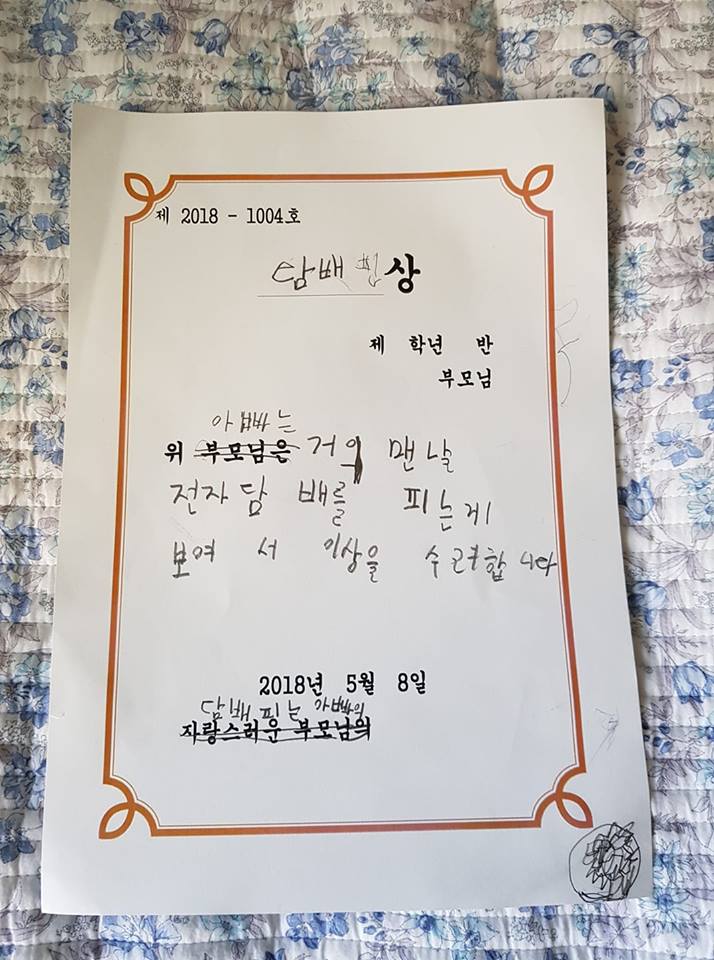 제 2018 - 1004호
담배 핌상
제 학년 반
부모님
아빠는
위 부모님은 거의 맨날
전자담 배를 피는게
보여 서 이상을 수
2018년 5월 8일
담배 피는 아빠의
자랑스러운 부모님의